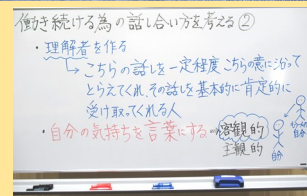 働き続ける為の話し合い方を考える②
・理解者を作る
↳こちらの話しを一定程度こちらの意に沿って
とらえてくれ、その話しを基本的に肯定的に
受け取ってくれる人
・自分の気持ちを言葉にする→客観的
主観的
自分